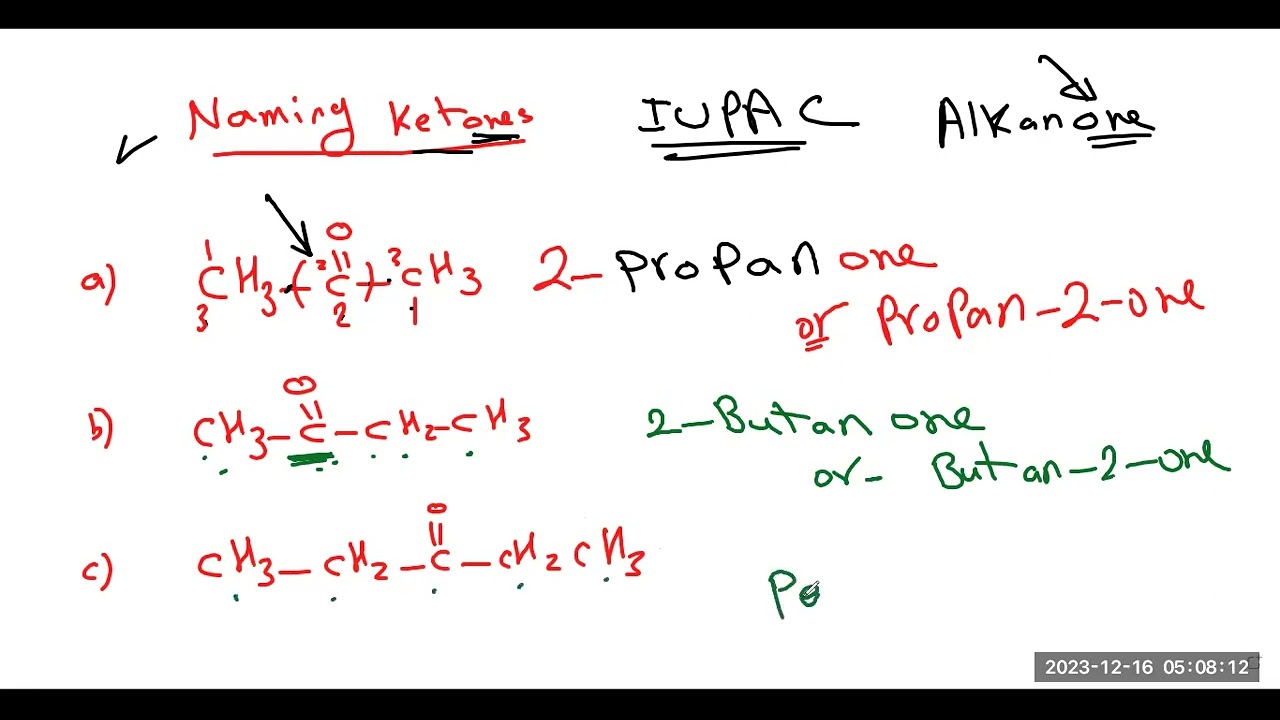 Naming Ketones IUPAC Alkanone
a) CH3-(C)-CH3 2-Propanone
O
1 2 3
3 2 1
or Propan-2-one
b) CH3-C-CH2-CH3 2-Butanone
O
or- Butan-2-one
c) CH3-CH2-C-CH2CH3
O
Pe
2023-12-16 05:08:12